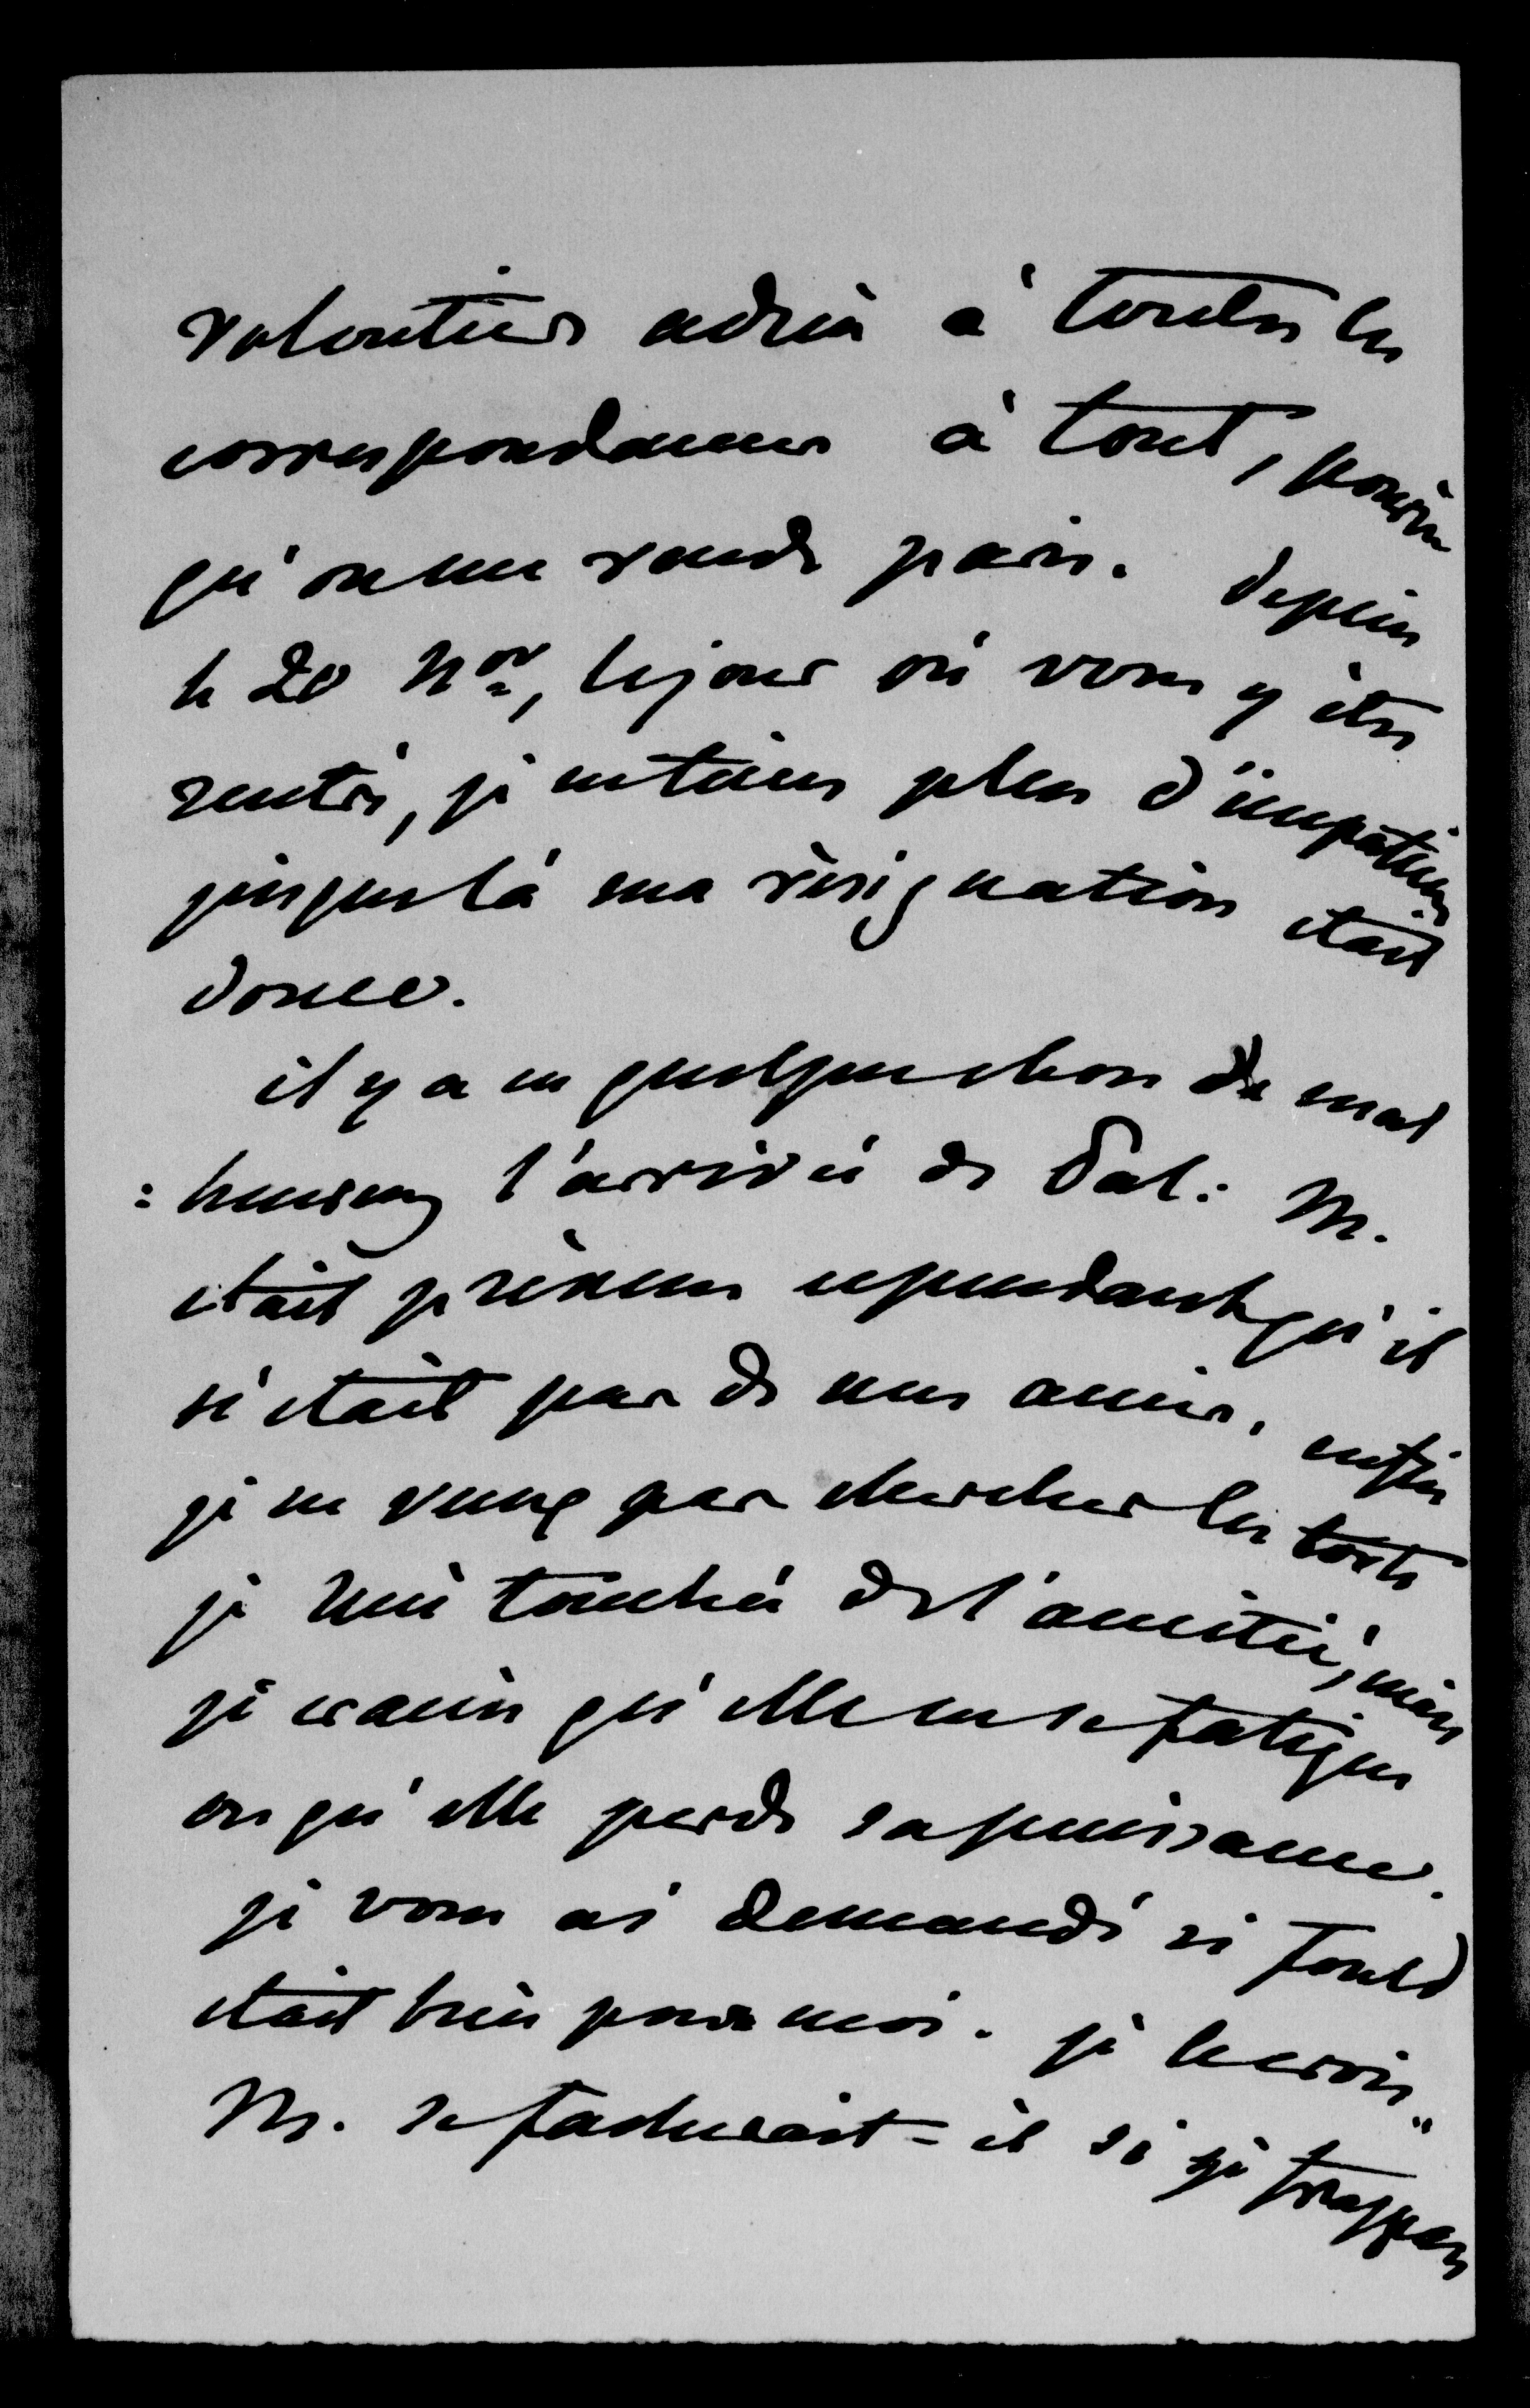 volontiers adieu à toutes les
correspondances à tout, pourvu
qu'on me rende paris. depuis
le 20 Nov, le jour où vous y êtes
rentré, je n'etais plus d'impatience
jusque là ma résignation etait
douce.
il y a eu quelque chose de mal
=heureux l'arrivée de Sal: M.
était prévenu cependant qu'il
n'etait pas de mes amis. enfin
je ne veux pas chercher les torts
je suis touchée de l'amitié, mais
je crains qu'elle ne se fatigue
ou qu'elle perde sa puissance.
je vous ai demandé si Fould
était bien pour moi. je le crois.
M. se facherait=il si je frappais